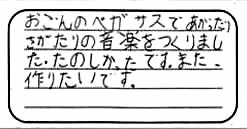 おごんのペガサスであがったり
さがたりの音楽をつくりまし
た。たのしかったです。また、
作りたいです。